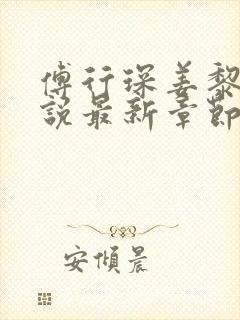 傅行琛姜黎
說最新章節
安傾晨